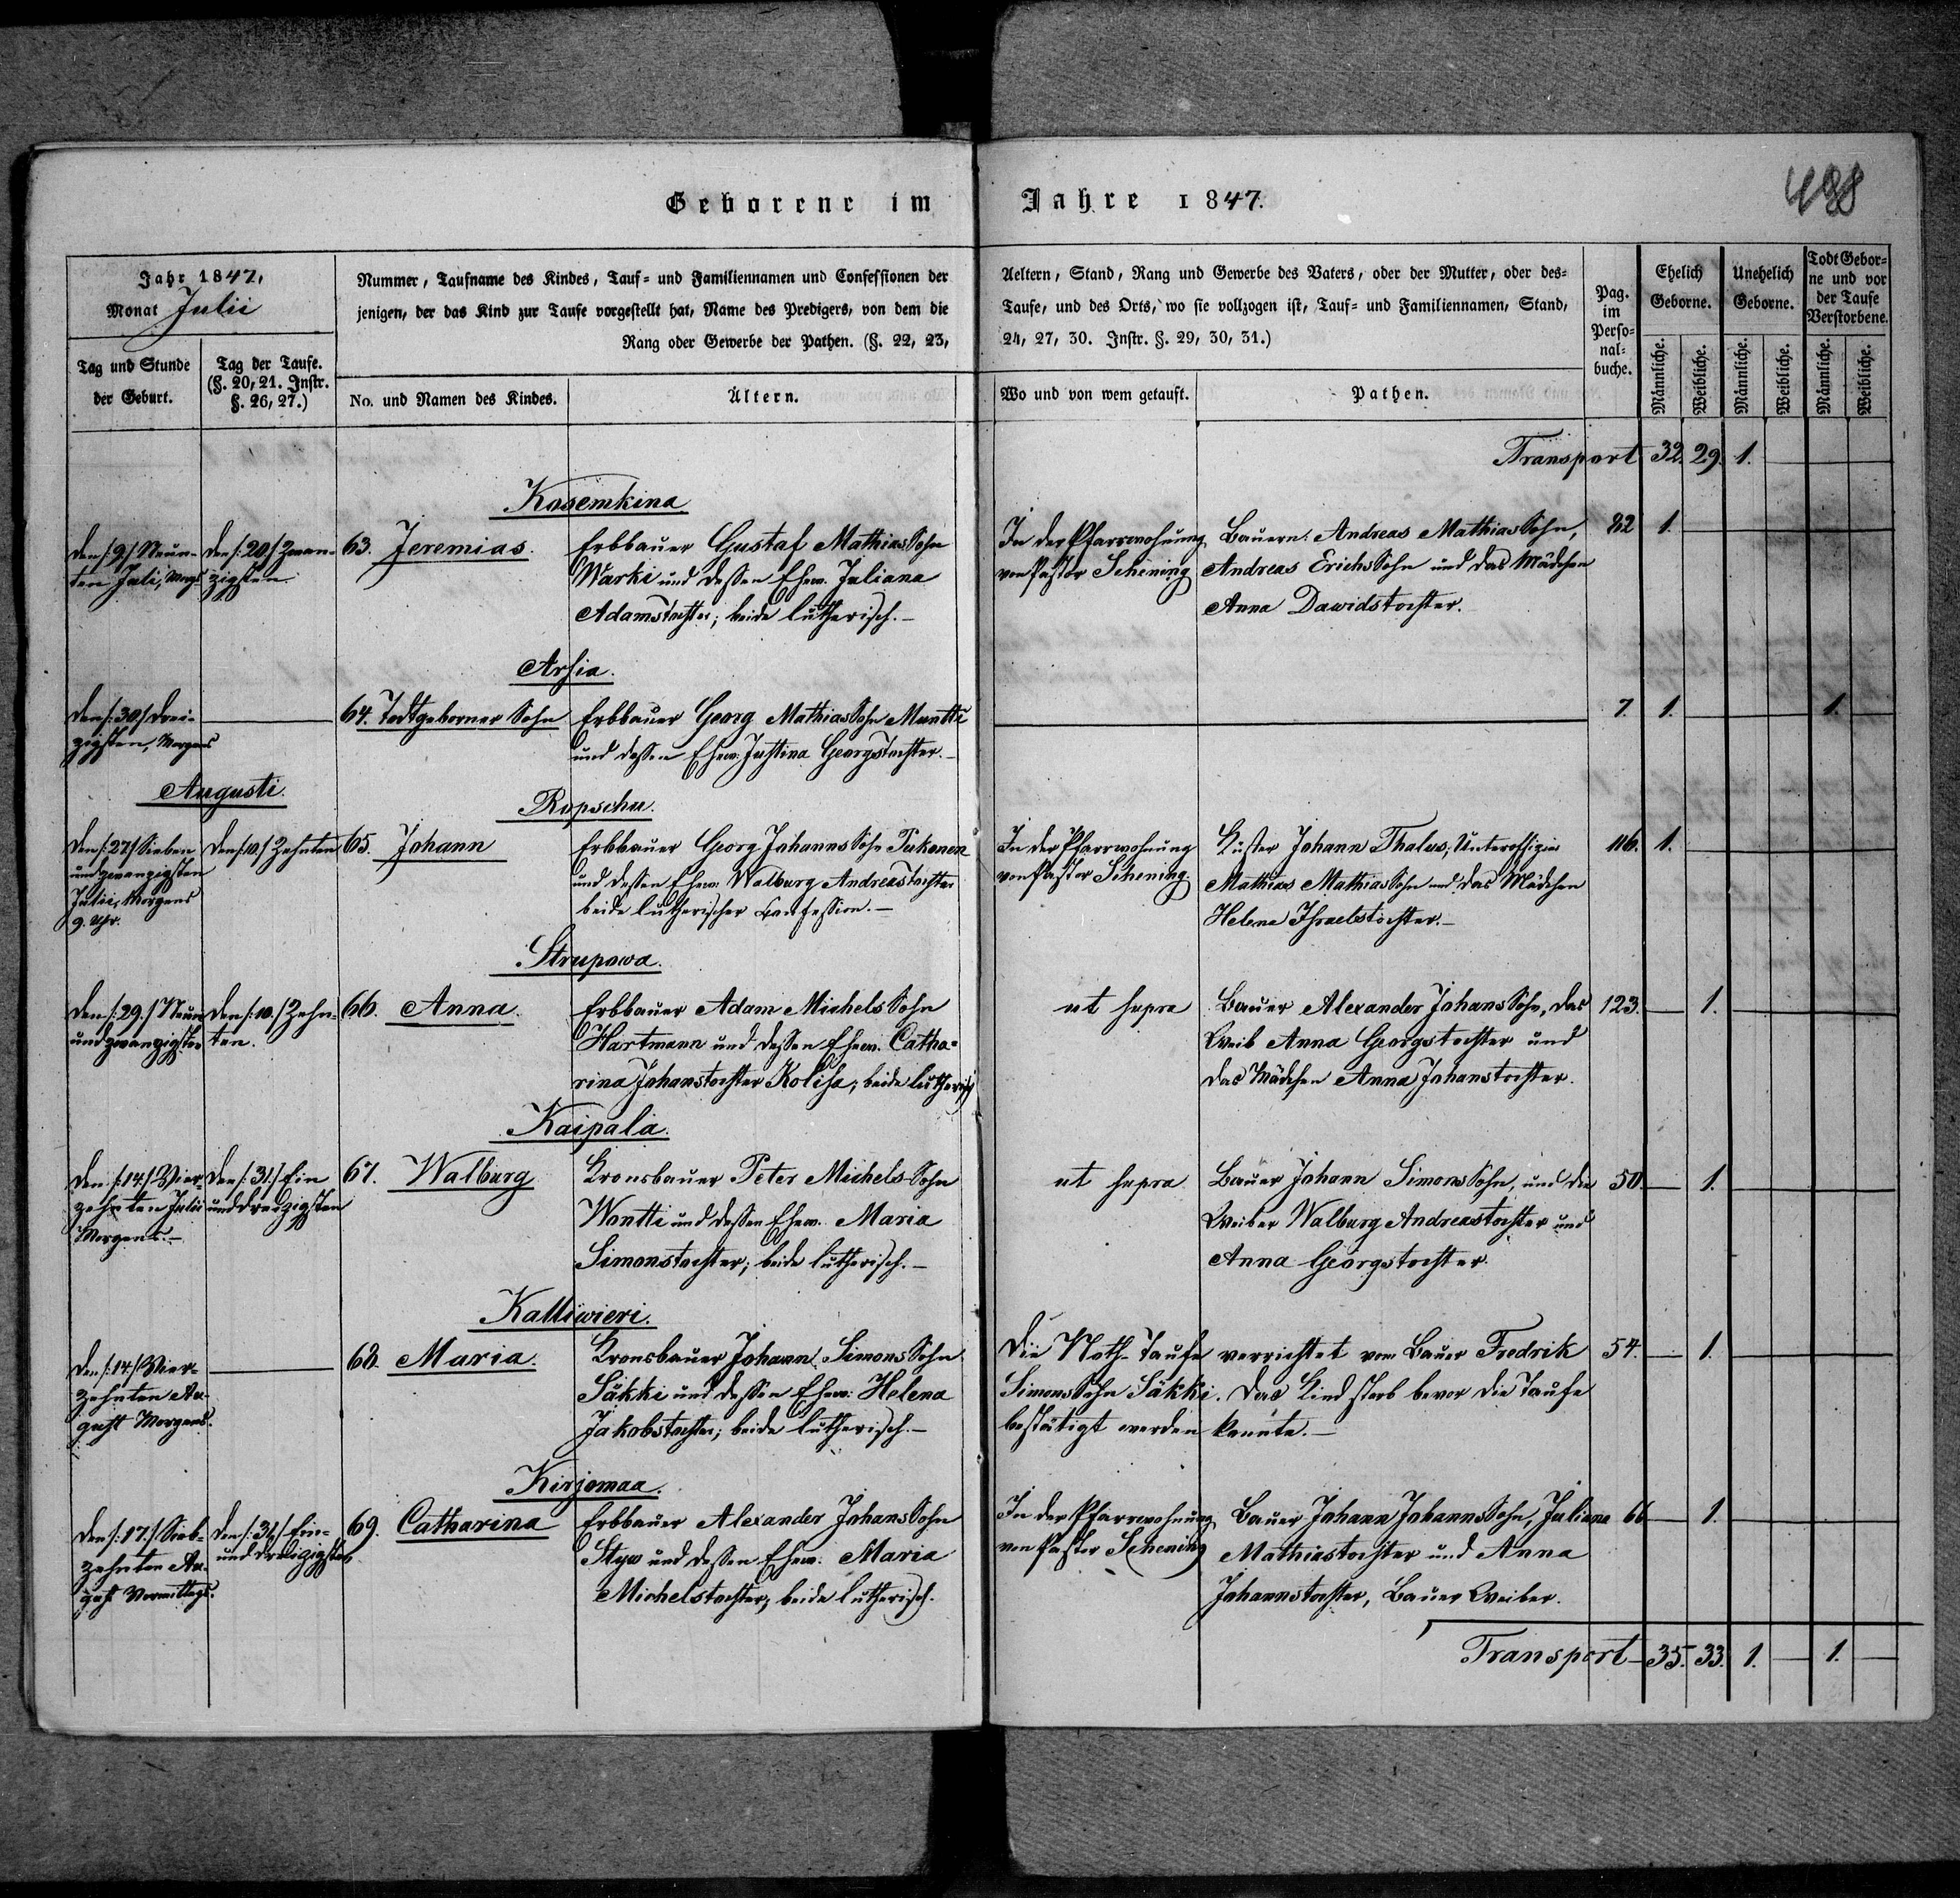 Geborene im Jahre 1847.
498
Jahr 1847.
Monat Julii
Nummer, Taufname des Kindes, Tauf- und Familiennamen und Confessionen der
jenigen, der das Kind zur Taufe vorgestellt hat, Name des Predigers, von dem die
Rang oder Gewerbe der Pathen. (§. 22, 23,
Aeltern, Stand, Rang und Gewerbe des Vaters, oder der Mutter, oder des-
Taufe, und des Orts, wo sie vollzogen ist, Tauf- und Familiennamen, Stand,
24, 27, 30. Instr. §. 29, 30, 31.)
Pag.
im
Perso-
nal-
buche.
Ehelich
Geborne.
Unehelich
Geborne.
Todt Gebor-
ne und vor
der Taufe
Verstorbene.
Tag und Stunde
der Geburt.
Tag der Taufe.
(§. 20, 21. Instr.
§. 26, 27.)
No. und Namen des Kindes.
Ältern.
Wo und von wem getauft.
Pathen.
Männliche.
Weibliche.
Männliche.
Weibliche.
Männliche.
Weibliche.
Transport 32. 29. 1.
Kosemkina
den /:9./ Neun-
ten Juli, Morgs
den /:20./ Zwan-
zigsten
63. Jeremias.
Erbbauer Gustaf Mathias Sohn
Warki und dessen Ehew. Juliana
Adamstochter; beide lutherisch.—
In der Pfarrwohnung
von Pastor Schening
Bauern: Andreas Mathias Sohn,
Andreas Erichs Sohn und das Mädchen
Anna Dawidstochter.
82 1.
Arsia.
den /:30./ drei-
zigsten, Morgens
64. Todtgeborner Sohn
Erbbauer Georg Mathias Sohn Muntti
und dessen Ehew. Justina Georgstochter.—
7. 1. 1.
Augusti.
Ropschu.
den /:27./ Sieben
und zwanzigsten
Julii, Morgens
9. Uhr.
den /:10./ Zehnten
65. Johann
Erbbauer Georg Johanns Sohn Pukonen
und dessen Ehew. Walburg Andreastochter
beide lutherischer Confession.—
In der Pfarrwohnung
von Pastor Schening.
Küster Johann Thalus, Unteroffizier
Mathias Mathias Sohn und das Mädchen
Helena Israelstochter.—
116. 1.
Strupowa.
den /:29./ Neun
und zwanzigsten
den /:10./ Zehn-
ten.
66. Anna.
Erbbauer Adam Michels Sohn
Hartmann und dessen Ehew. Catha-
rina Johanstochter Kolisa; beide lutherisch
ut supra
Bauer Alexander Johans Sohn, das
Weib Anna Georgstochter und
das Mädchen Anna Johanstochter.
123. 1.
Kaipala.
den /:14./ Vier-
zehnten Julii
Morgens.—
den /:31./ Ein
und dreizigsten
67. Walburg
Kronsbauer Peter Michels Sohn
Wantti und dessen Ehew. Maria
Simonstochter; beide lutherisch.—
ut supra
Bauer Johann Simons Sohn, und die
Weiber Walburg Andreastochter und
Anna Georgstochter.
50. 1.
Kalliwieri.
den /:14./ Vier-
zehnten Au-
gust Morgens.
68. Maria.
Kronsbauer Johann Simons Sohn
Säkki und dessen Ehew: Helena
Jakobstochter; beide lutherisch.—
Die Noth-Taufe verrichtet vom Bauer Fredrik
Simons Sohn Säkki. Das Kind starb bevor die Taufe
bestätigt werden konnte.—
54. 1.
Kirjomaa.
den /:17./ Sieb-
zehnten Au-
gust Vormittags.
den /:31./ Ein-
und dreizigsten
69. Catharina
Erbbauer Alexander Johans Sohn
Styw und dessen Ehew: Maria
Michelstochter; beide lutherisch.
In der Pfarrwohnung
von Pastor Schening
Bauer Johann Johanns Sohn, Juliana
Mathiastochter und Anna
Johannstochter, Bauer Weiber.
66 1.
Transport 35. 33. 1. 1.